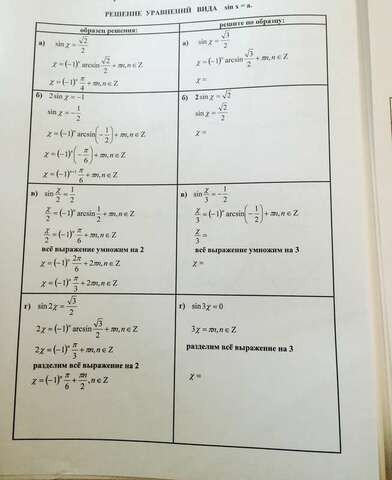 РЕШЕНИЕ УРАВНЕНИЙ ВИДА sin x = a.
образец решения:
а) sin χ = √2/2
χ = (−1)ⁿ arcsin √2/2 + πn, n ∈ Z
χ = (−1)ⁿ π/4 + πn, n ∈ Z
решите по образцу:
а) sin χ = √3/2
χ = (−1)ⁿ arcsin √3/2 + πn, n ∈ Z
χ =
б) 2 sin χ = −1
sin χ = −1/2
χ = (−1)ⁿ arcsin(−1/2) + πn, n ∈ Z
χ = (−1)ⁿ(−π/6) + πn, n ∈ Z
χ = (−1)ⁿ⁺¹ π/6 + πn, n ∈ Z
б) 2 sin χ = √2
sin χ = √2/2
χ =
в) sin χ/2 = 1/2
χ/2 = (−1)ⁿ arcsin 1/2 + πn, n ∈ Z
χ/2 = (−1)ⁿ π/6 + πn, n ∈ Z
всё выражение умножим на 2
χ = (−1)ⁿ 2π/6 + 2πn, n ∈ Z
χ = (−1)ⁿ π/3 + 2πn, n ∈ Z
в) sin χ/3 = −1/2
χ/3 = (−1)ⁿ arcsin(−1/2) + πn, n ∈ Z
χ/3 =
всё выражение умножим на 3
χ =
г) sin 2χ = √3/2
2χ = (−1)ⁿ arcsin √3/2 + πn, n ∈ Z
2χ = (−1)ⁿ π/3 + πn, n ∈ Z
разделим всё выражение на 2
χ = (−1)ⁿ π/6 + πn/2, n ∈ Z
г) sin 3χ = 0
3χ = πn, n ∈ Z
разделим всё выражение на 3
χ =